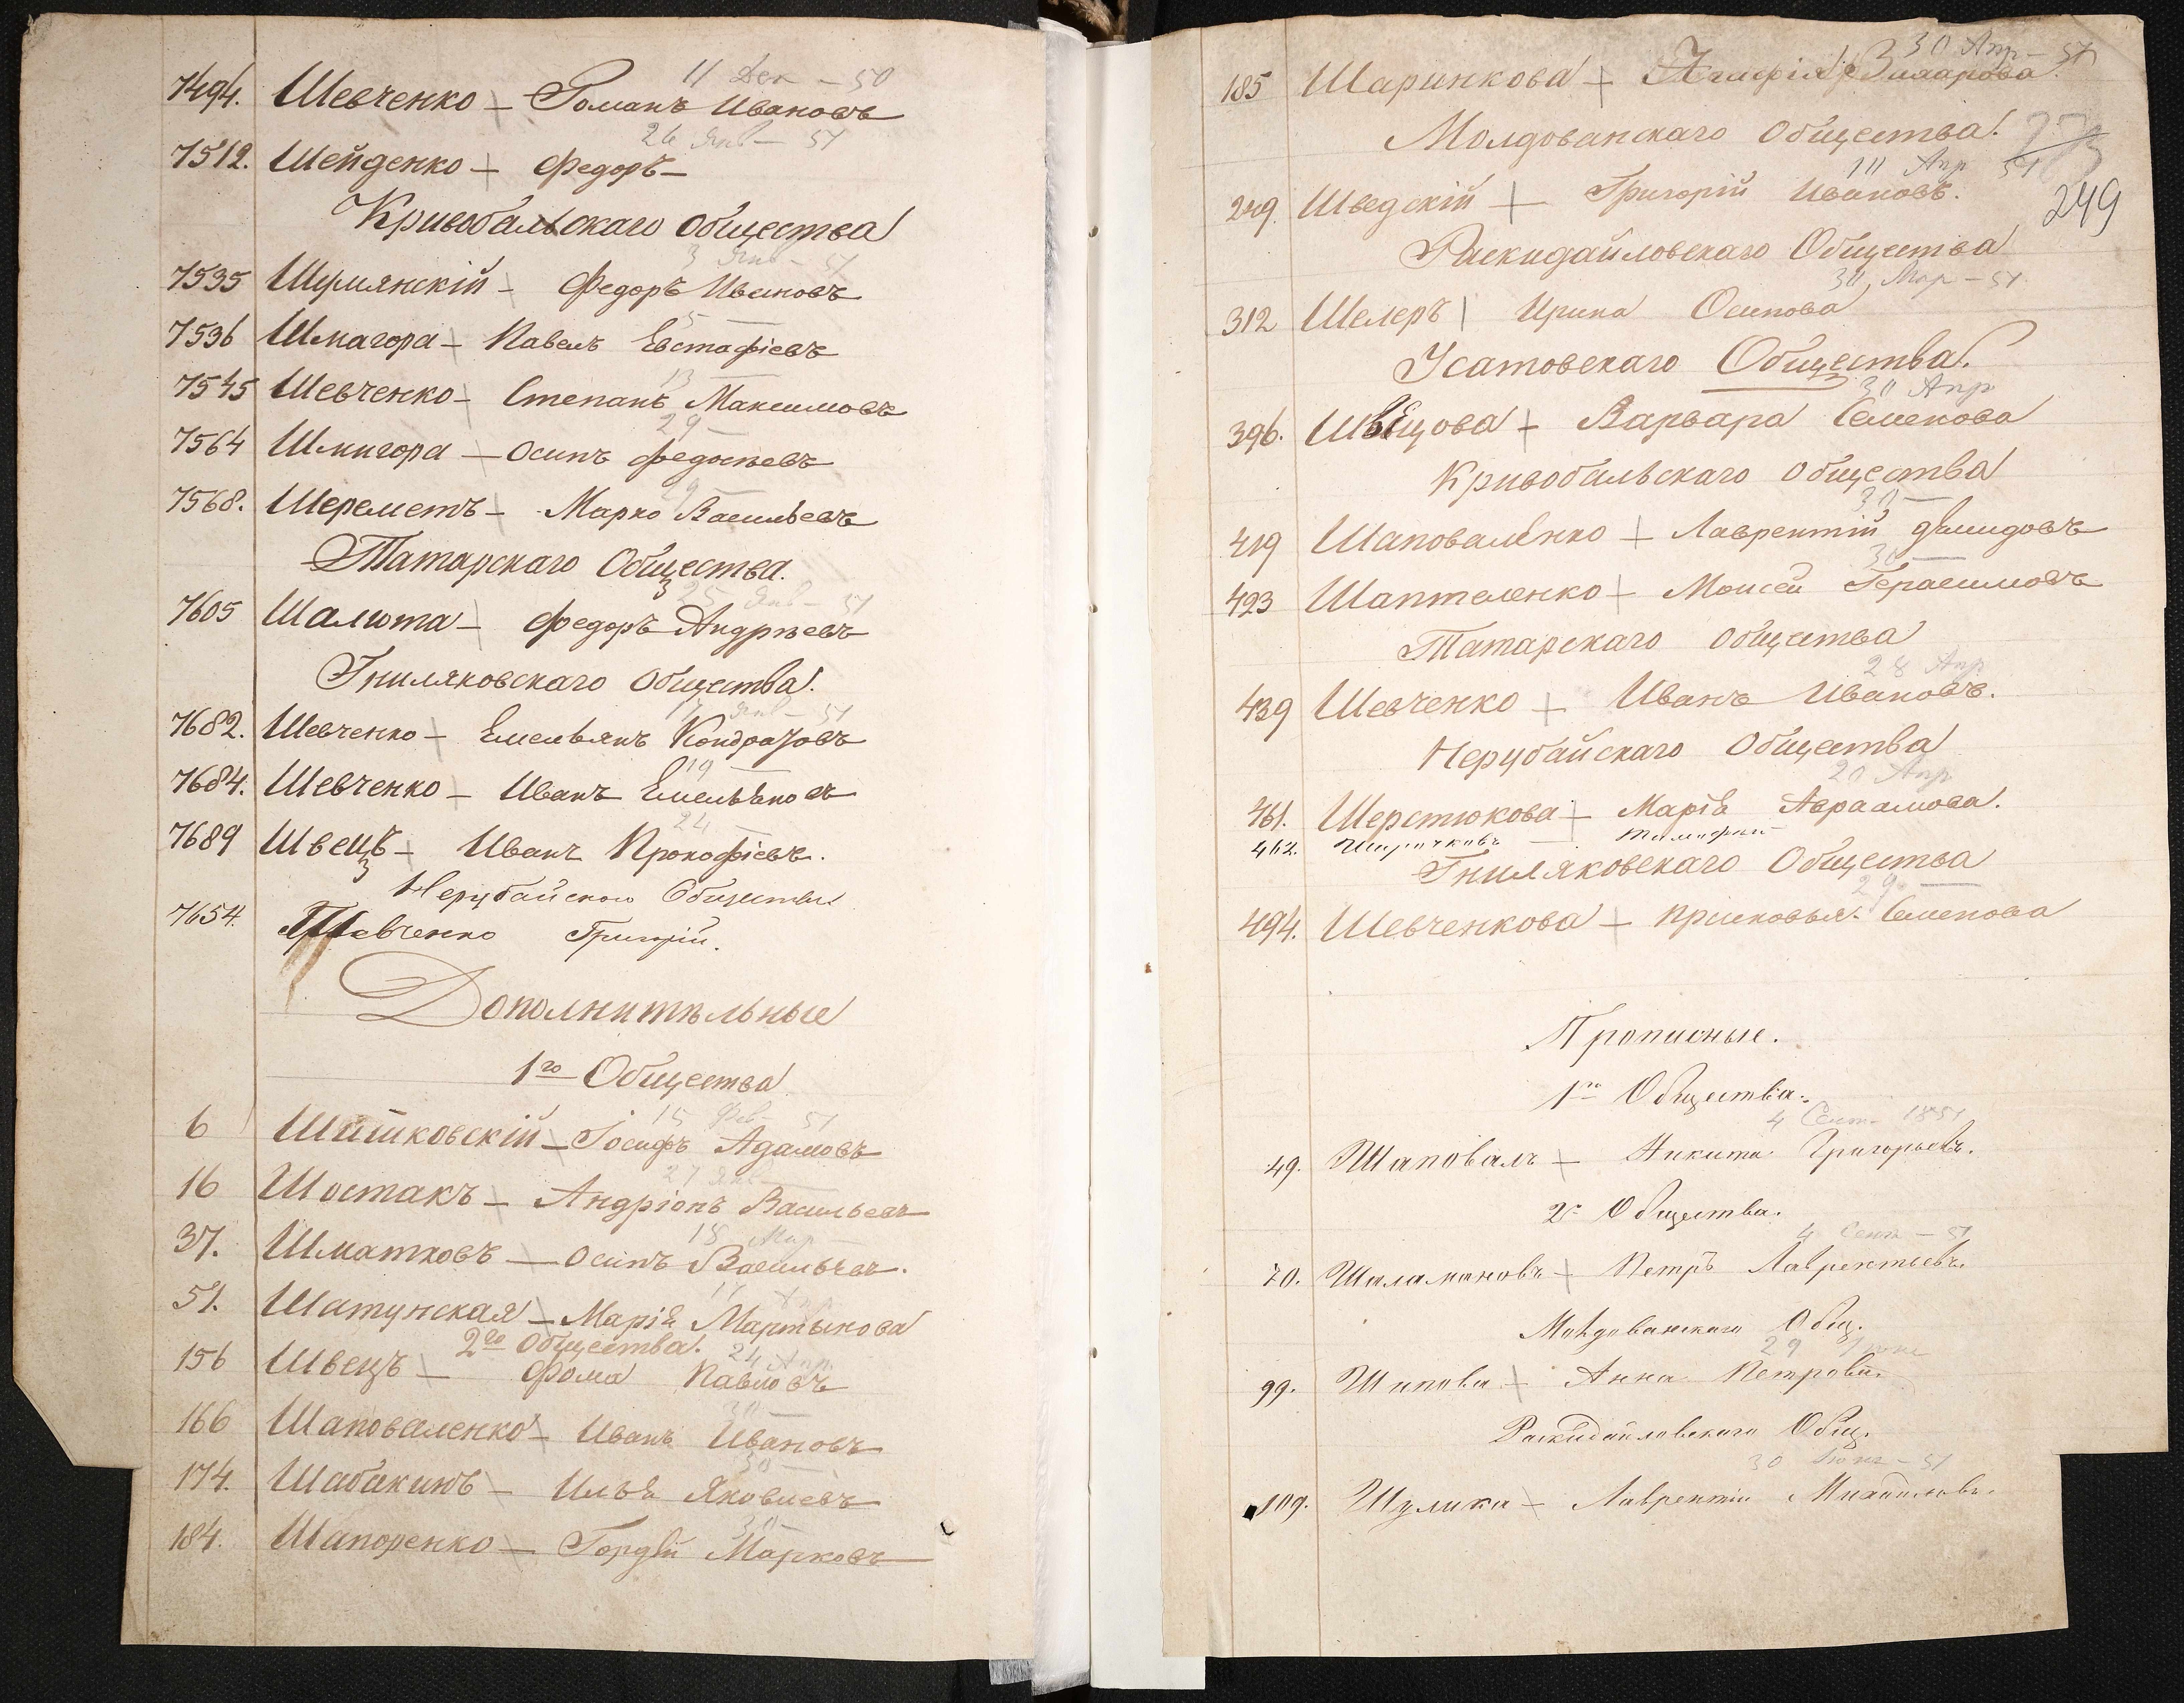 11 Дек — 50
7494. Шевченко — Романъ Ивановъ
26 Янв — 51
7512. Шейденко — Федоръ —
Кривобальскаго Общества
3 Янв — 51
7535 Шумянскій — Федоръ Ивановъ
5 —
7536 Шмагора — Павелъ Евстафіевъ
13 —
7545 Шевченко — Степанъ Максимовъ
29 —
7564 Шмигора — Осипъ Федосѣевъ
29 —
7568. Шереметъ — Марко Васильевъ
Татарскаго Общества.
25 Янв — 51
7605 Шалюта — Федоръ Андрѣевъ
Гниляковскаго Общества.
17 Янв — 51
7682. Шевченко — Емельянъ Кондратовъ
19 —
7684. Шевченко — Иванъ Емельяновъ
24 —
7689 Швецъ — Иванъ Прокофіевъ.
Нерубайскаго Общества
7654. Шевченко Григорій.
Дополнительные
1го Общества
15 Фев — 51
6 Шишковскій — Іосифъ Адамовъ
27 Янв —
16 Шостакъ — Андріонъ Васильевъ
15 Мар —
37. Шматковъ — Осипъ Васильевъ.
Апр
51. Шатунская — Марія Мартынова
2го Общества.
24 Апр
156 Швецъ — Фома Павловъ
30 —
166 Шаповаленко — Иванъ Ивановъ
30 —
174. Шабакинъ — Илья Яковлевъ
30 —
184. Шапоренко — Гордѣй Марковъ
30 Апр — 51
185 Шаринкова — Агафія
Молдованскаго Общества.
Апр 51
249. Шведскій — Григорій Ивановъ.
249
Раскидайловскаго Общества
30 Мар — 51.
312 Шелеръ Ирина Осипова
Усатовскаго Общества.
30 Апр
396. Швецова — Варвара Семенова
Кривобальскаго Общества
30 —
419 Шаповаленко — Лаврентій Демидовъ
30 —
423 Шаптеленко — Моисей Герасимовъ
Татарскаго Общества
28 Апр
439 Шевченко — Иванъ Ивановъ.
Нерубайскаго Общества
20 Апр
461. Шерстюкова — Марія Авраамова.
462. — Тимофей
Гниляковскаго Общества
29 —
494. Шевченкова — Прасковья Семенова
Прописные.
1го Общества.
4 Сент. 1851
49. Шаповалъ — Никита Григорьевъ.
2го Общества.
4 Сент — 51
70. Шаламановъ — Петръ Лаврентьевъ.
Молдованскаго Общ.
29 Іюня
99. Шипова — Анна Петрова.
Раскидайловскаго Общ.
30 Іюня — 51
109. Шулика — Лаврентій Михайловъ.